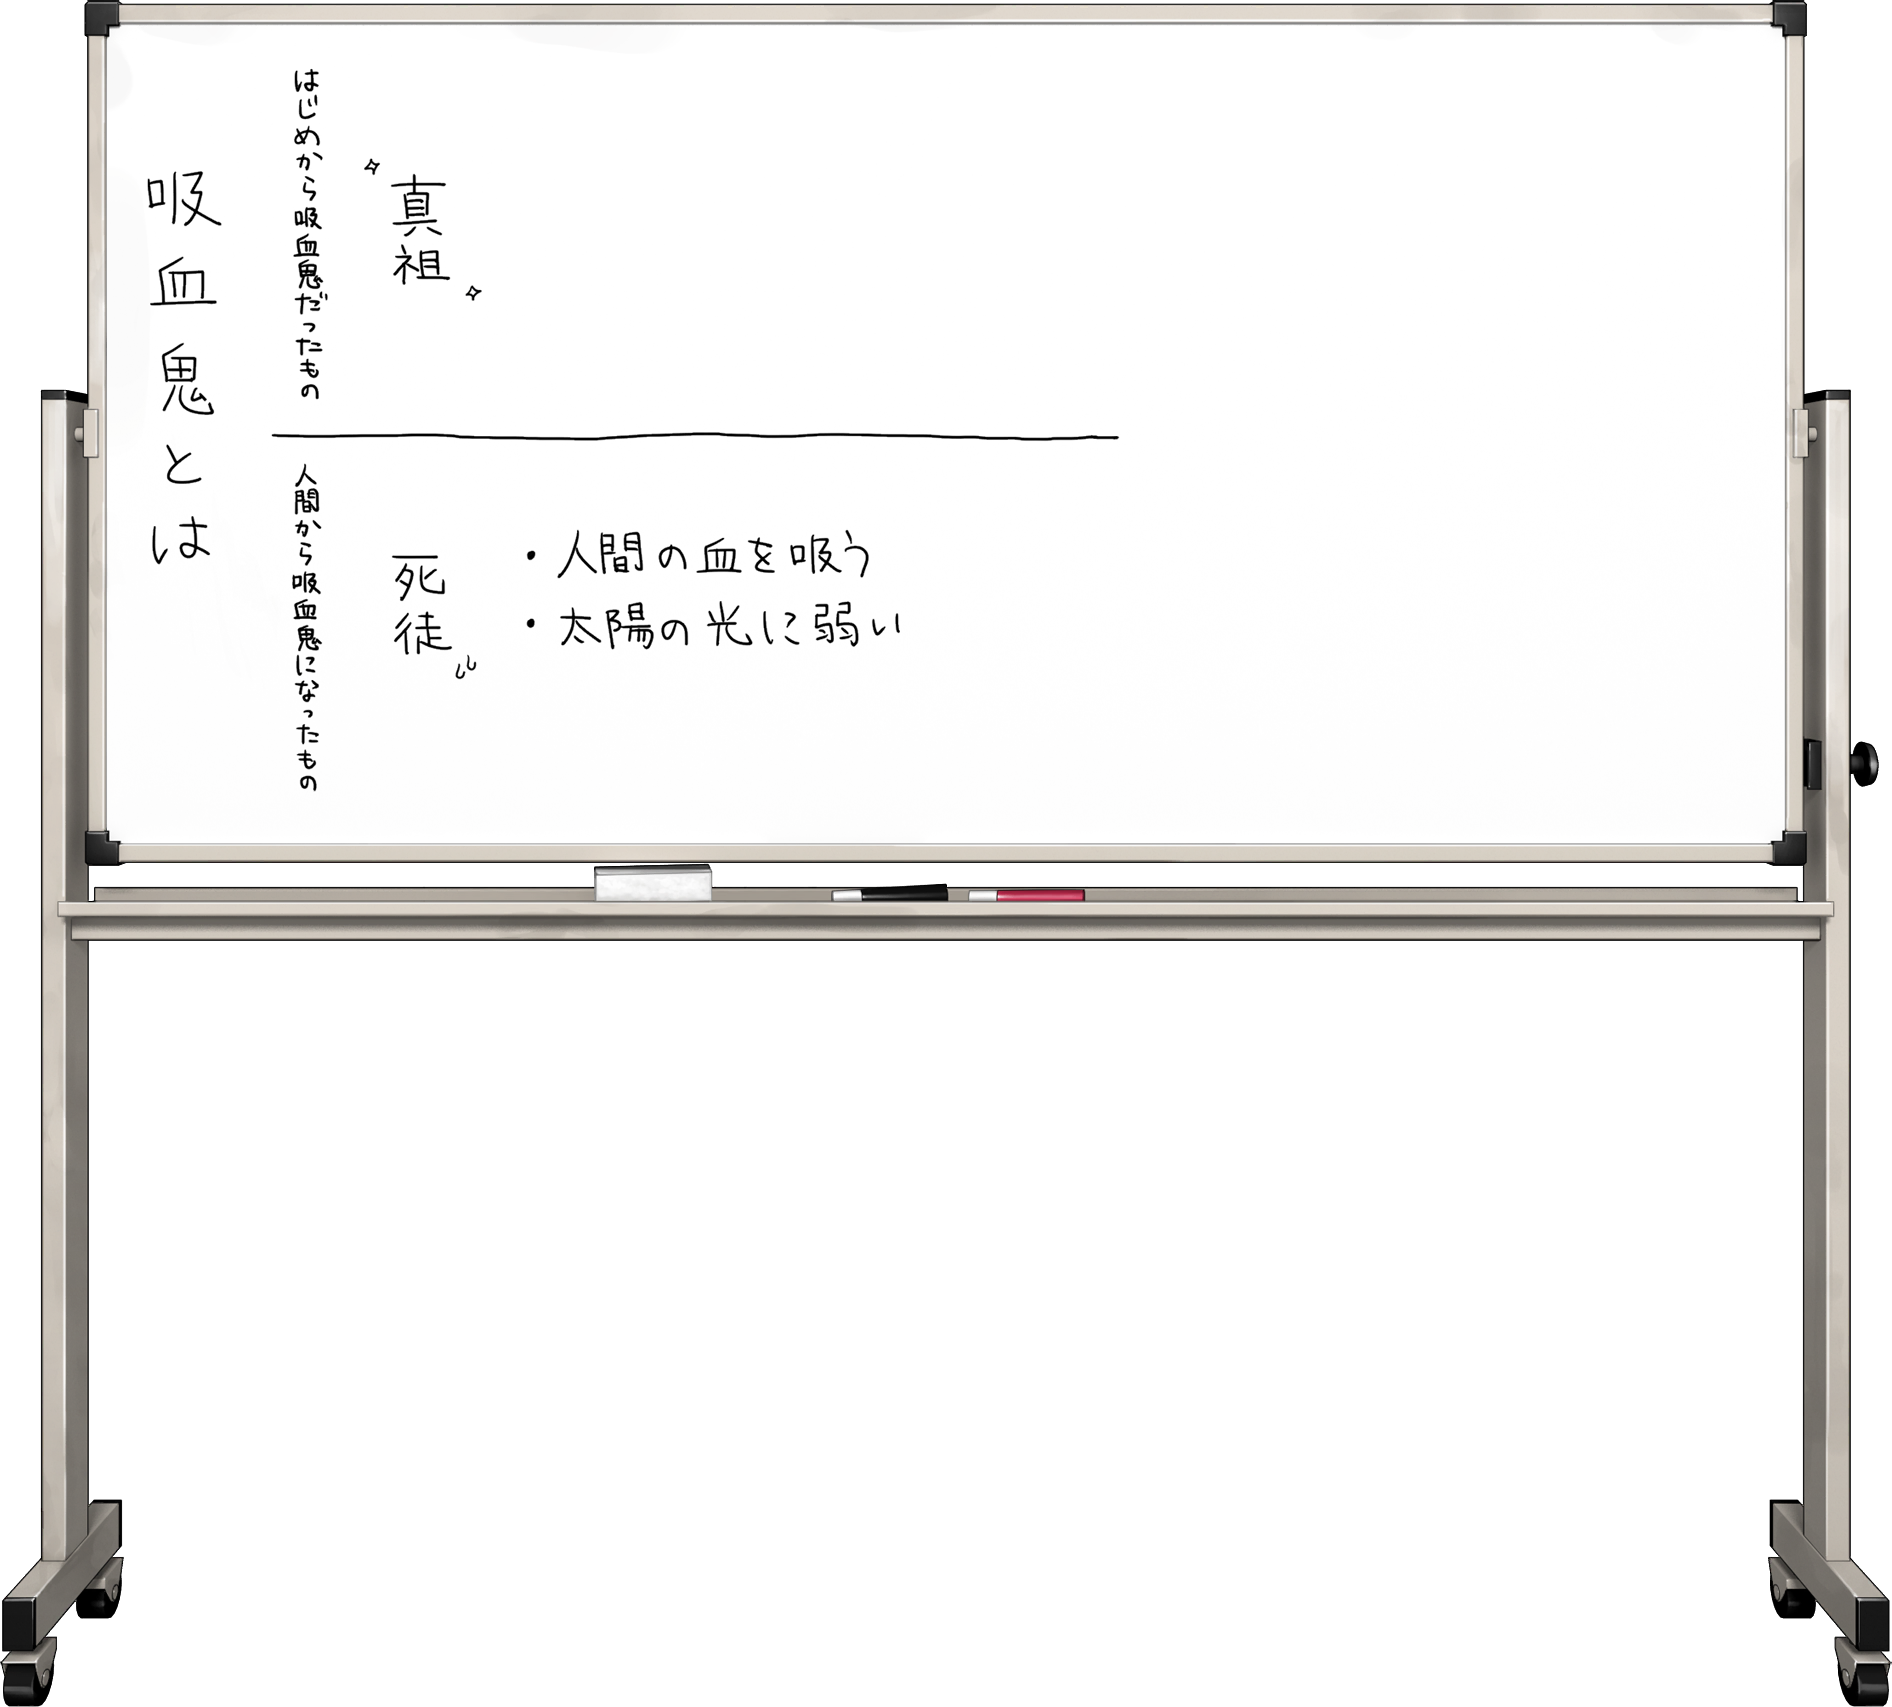 吸血鬼とは
はじめから吸血鬼だったもの
真祖
人間から吸血鬼になったもの
死徒
・人間の血を吸う
・太陽の光に弱い